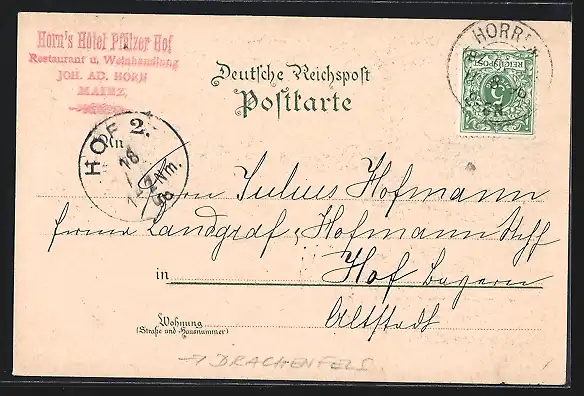 Horn's Hôtel Pfälzer Hof
Restaurant u. Weinhandlung
JOH. AD. HORN
MAINZ,
Deutsche Reichspost
Postkarte
HORR
REICHSPOST
5
HOF 2.
18
Nm.
An
Herrn Julius Hofmann
Firma Landgraf, Hofmann
in Hof Bayern
Altstadt
Wohnung
(Straße und Hausnummer)
→ DRACHENFELS